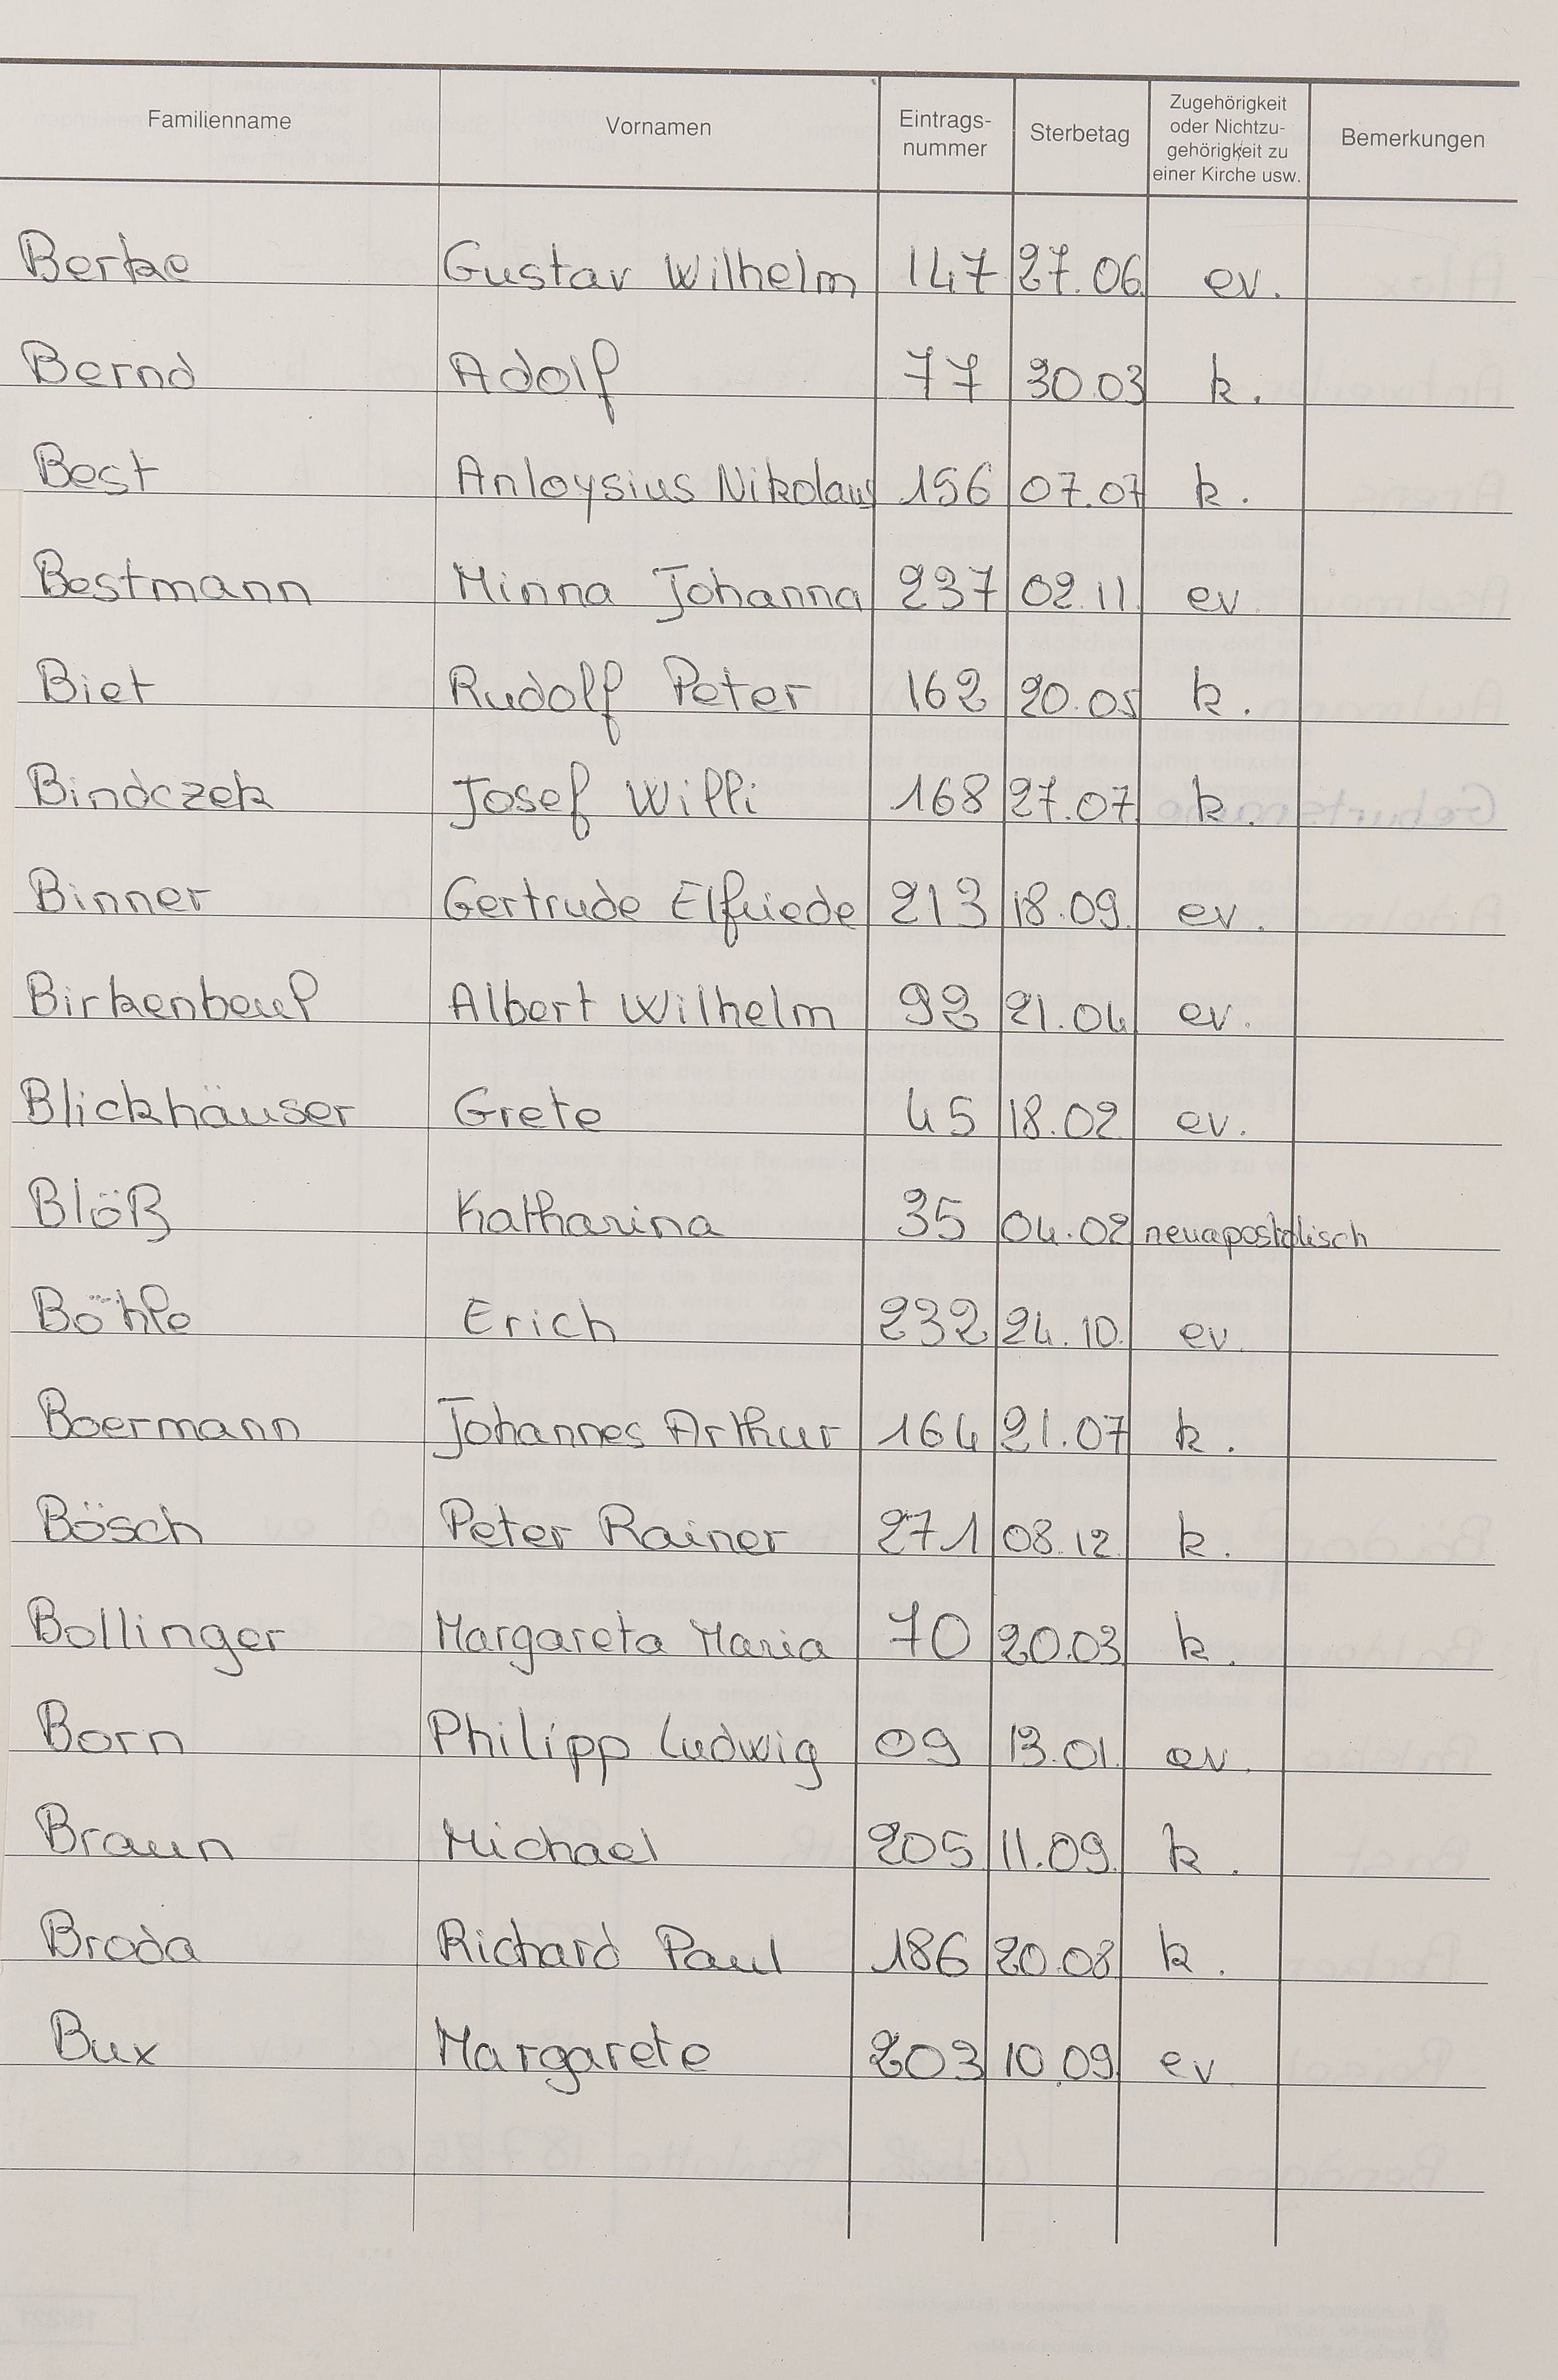 Familienname Vornamen Eintrags-nummer Sterbetag Zugehörigkeit oder Nichtzu-gehörigkeit zu einer Kirche usw. Bemerkungen
Berke Gustav Wilhelm 147 27.06. ev.
Bernd Adolf 77 30.03 k.
Best Anloysius Nikolaus 156 07.07 k.
Bestmann Minna Johanna 237 02.11. ev.
Biet Rudolf Peter 162 20.05 k.
Bindczek Josef Willi 168 27.07. k.
Binner Gertrude Elfriede 213 18.09. ev.
Birkenbeul Albert Wilhelm 92 21.04 ev.
Blickhäuser Grete 45 18.02. ev.
Blöß Katharina 35 04.02 neuapostolisch
Böhle Erich 232 24.10. ev.
Boermann Johannes Arthur 164 21.07 k.
Bösch Peter Rainer 271 08.12. k.
Bollinger Margareta Maria 70 20.03 k.
Born Philipp Ludwig 09 13.01. ev.
Braun Michael 205 11.09. k.
Broda Richard Paul 186 20.08. k.
Bux Margarete 203 10.09. ev